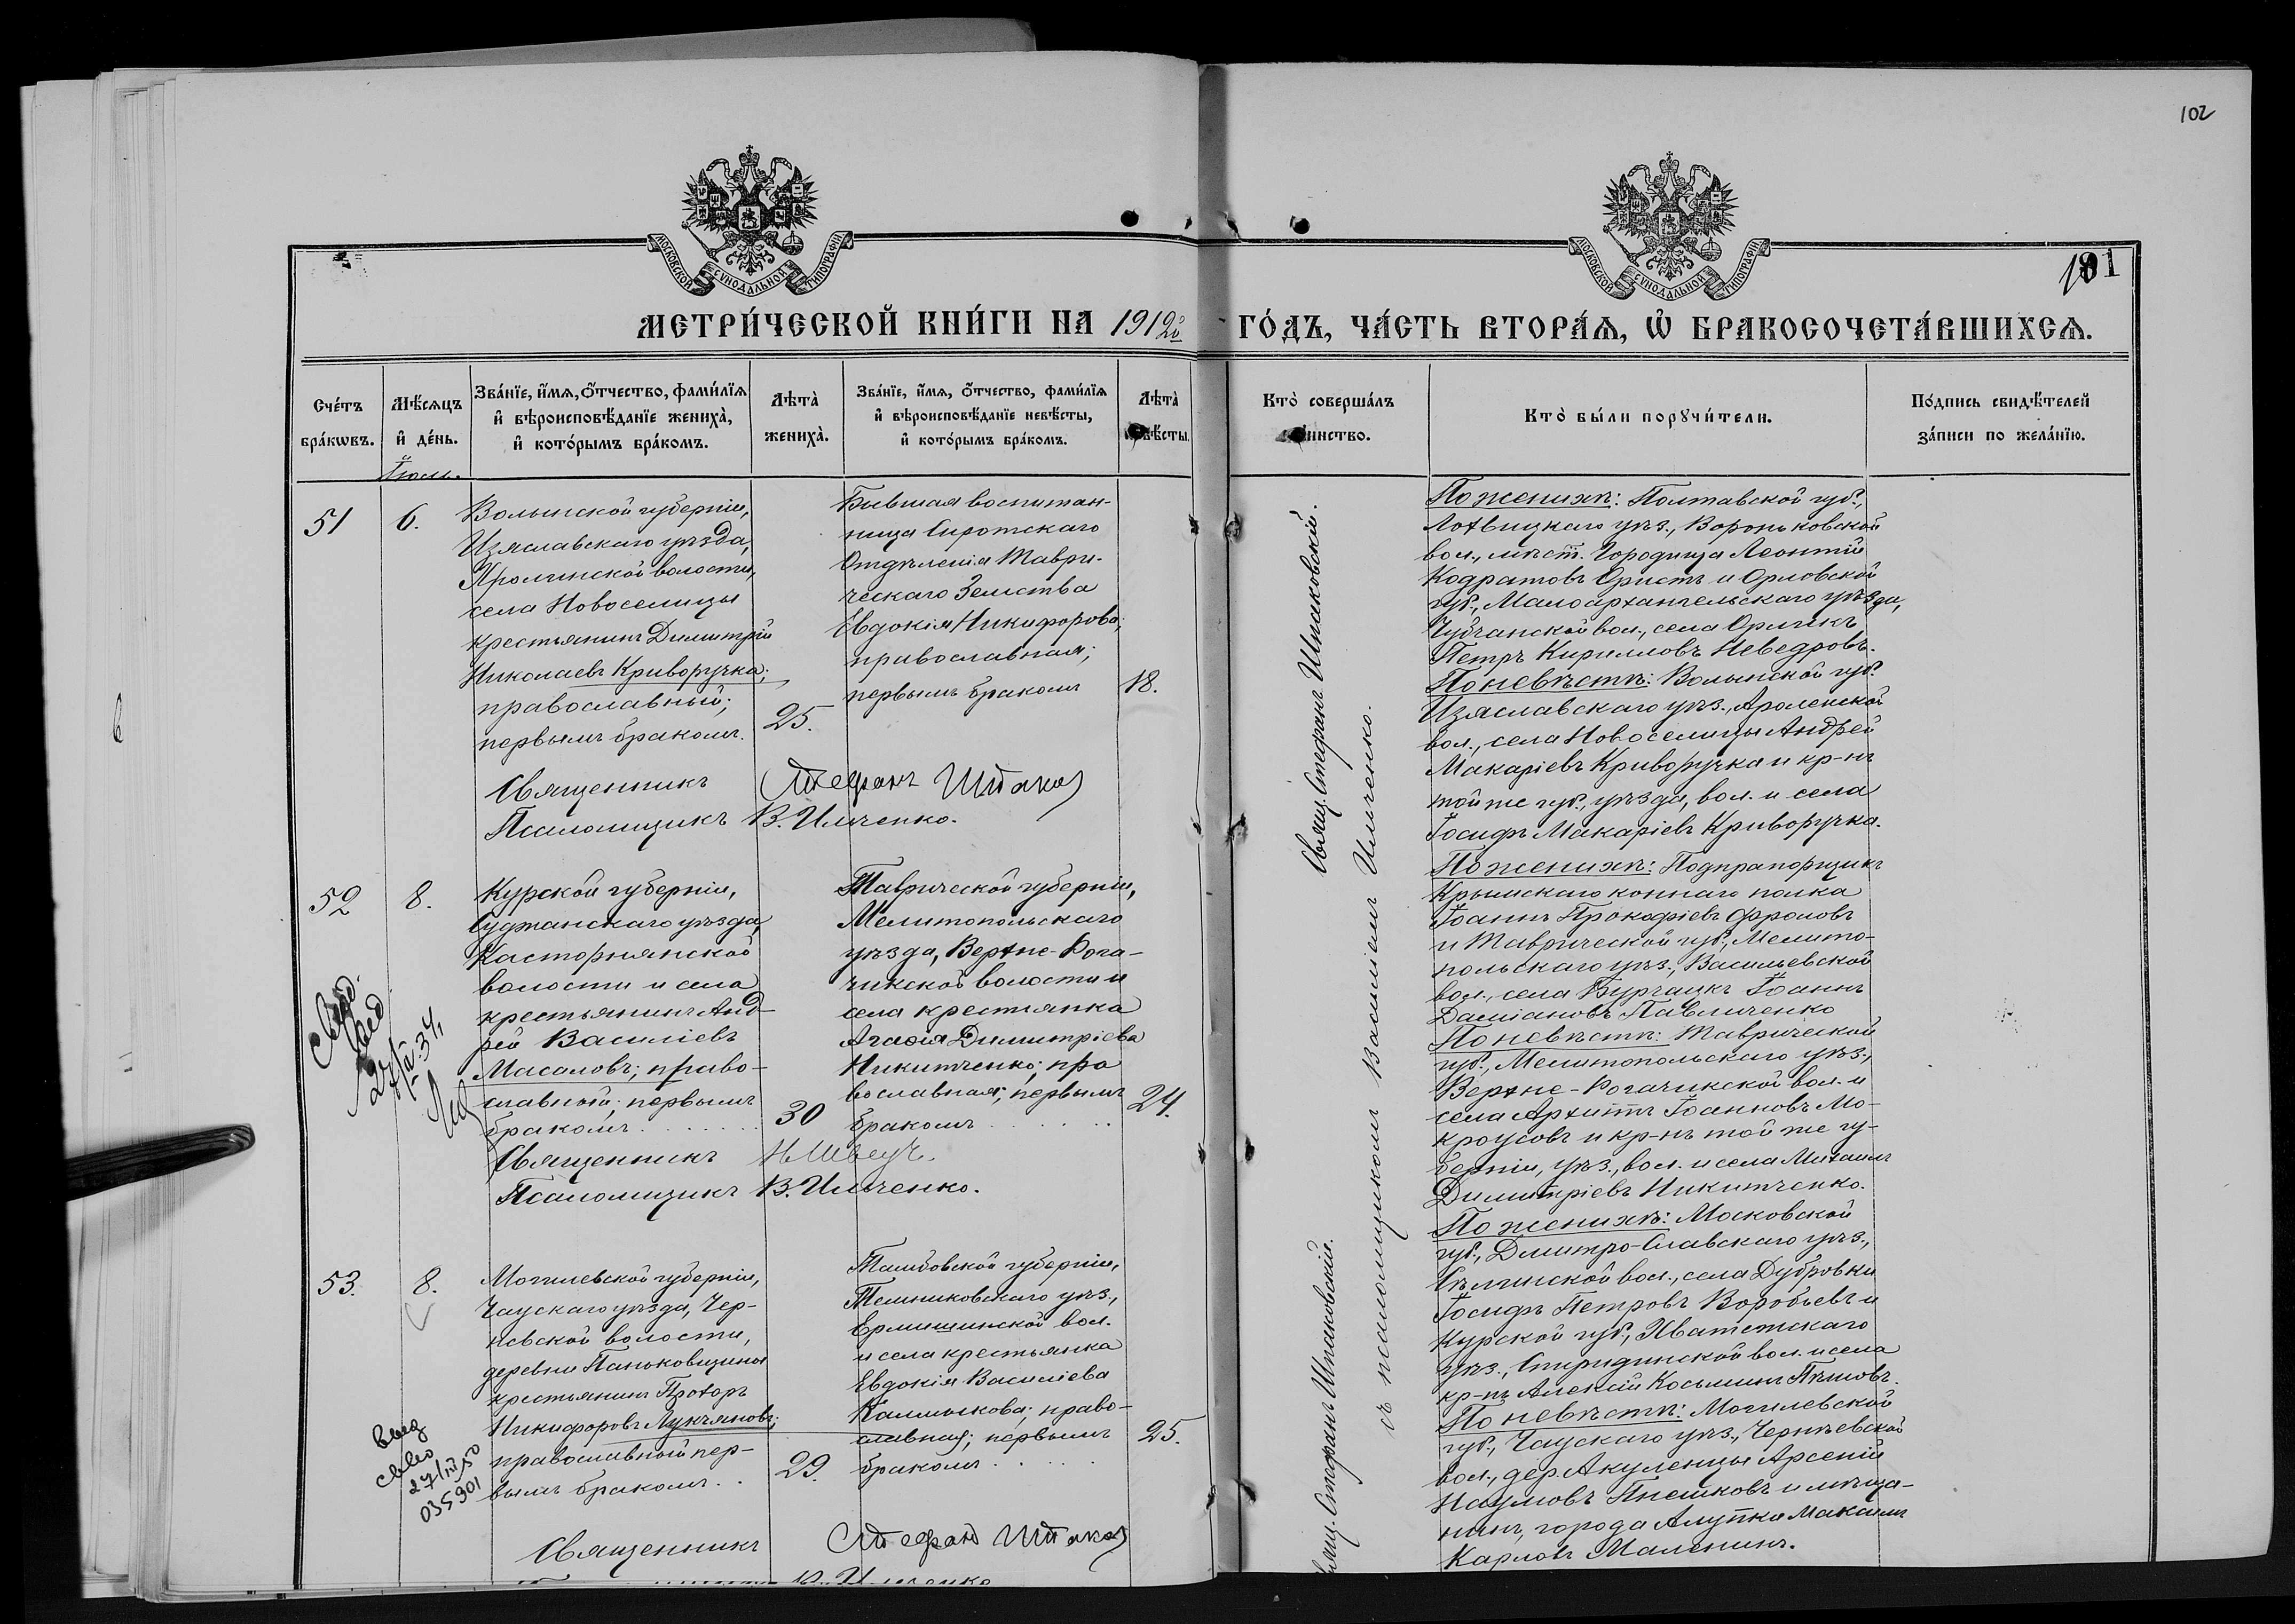 102
МОСКОВСКОЙ СѴНОДАЛЬНОЙ ТИПОГРАФІИ
МОСКОВСКОЙ СѴНОДАЛЬНОЙ ТИПОГРАФІИ
101
МЕТРИ́ЧЕСКОЙ КНИ́ГИ НА 1912й ГО́ДЪ, ЧА́СТЬ ВТОРА́Ѧ, Ѡ҆ БРАКОСОЧЕТА́ВШИХСѦ.
Сче́тъ бра́кѡвъ.
Мѣ́сѧцъ и҆ де́нь.
Зва́нїе, и҆́мѧ, ѻ҆́тчество, фами́лїѧ и҆ вѣроисповѣ́данїе жениха̀, и҆ кото́рымъ бра́комъ.
Лѣта̀ жениха̀.
Зва́нїе, и҆́мѧ, ѻ҆́тчество, фами́лїѧ и҆ вѣроисповѣ́данїе невѣ́сты, и҆ кото́рымъ бра́комъ.
Лѣта̀ невѣ́сты.
Кто̀ соверша́лъ таинство.
Кто̀ бы́ли порꙋчи́тели.
По́дпись свидѣ́телей за́писи по жела́нїю.
Іюль.
51
6.
Волынской губерніи,
Изяславскаго уѣзда,
волости,
села Новоселицы
крестьянинъ Димитрій
Николаевъ Криворучка;
православный;
первымъ бракомъ.
25.
Бывшая воспитан-
ница Сиротскаго
Отдѣленія Таври-
ческаго Земства
Евдокія Никифорова;
православная;
первымъ бракомъ
18.
Священникъ Стефанъ
Псаломщикъ В. Ильченко.
Свящ. Стефанъ Шпаковскій.
съ псаломщикомъ Василіемъ Ильченко.
По женихѣ: Полтавской губ.,
Лохвицкаго уѣз., Вороньковской
вол., мѣст. Городища Леонтій
Кодратовъ и Орловской
губ., Малоархангельскаго уѣзда,
вол., села
Петръ Кирилловъ Неведровъ.
По невѣстѣ: Волынской губ.
Изяславскаго уѣз.,
вол., села Новоселицы Андрей
Макаріевъ Криворучка и кр-нъ
той же губ., уѣзда, вол. и села
Іосифъ Макаріевъ Криворучка.
52
8.
Курской губерніи,
Суджанскаго уѣзда,
Касторнянской
волости и села
крестьянинъ Анд-
рей Василіевъ
Масаловъ; право-
славный; первымъ
бракомъ
30
Таврической губерніи,
Мелитопольскаго
уѣзда, Верхне-Рога-
чикской волости и
села крестьянка
Агафія Димитріева
Никитченко; пра
вославная; первымъ
бракомъ
24.
Священникъ Н. Швецъ.
Псаломщикъ В. Ильченко.
По женихѣ: Подпрапорщикъ
Крымскаго коннаго полка
Іоаннъ Прокофіевъ Фроловъ
и Таврической губ., Мелито-
польскаго уѣз., Васильевской
вол., села Бурчацкъ Іоаннъ
Даміановъ Павличенко
По невѣстѣ: Таврической
губ., Мелитопольскаго уѣз.,
Верхне-Рогачикской вол. и
села Архиппъ Іоанновъ Мо-
кроусовъ и кр-нъ той же гу-
берніи, уѣз., вол. и села Михаилъ
Димитріевъ Никитченко.
53.
8.
Могилевской губерніи,
Чаускаго уѣзда, Чер-
невской волости,
деревни Паньковщины
крестьянинъ Прохоръ
Никифоровъ Лукъяновъ;
православный пер-
вымъ бракомъ
29.
Тамбовской губерніи,
Темниковскаго уѣз.,
Ермишинской вол.
и села крестьянка
Евдокія Василіева
Калмыкова; право-
славная; первымъ
бракомъ
25.
выд
свид
035901
Священникъ Стефанъ
Свящ. Стефанъ Шпаковскій.
По женихѣ: Московской
губ., Дмитро-Славскаго уѣз.,
вол., села Дубровки
Іосифъ Петровъ Воробьевъ и
Курской губ.,
уѣз., вол. и села
кр-нъ Алексій Косьминъ
По невѣстѣ: Могилевской
губ., Чаускаго уѣз., Чернѣевской
вол., дер. Акуленцы Арсеній
Наумовъ и мѣща-
нинъ, города Алупки Максимъ
Карловъ Маленинъ.